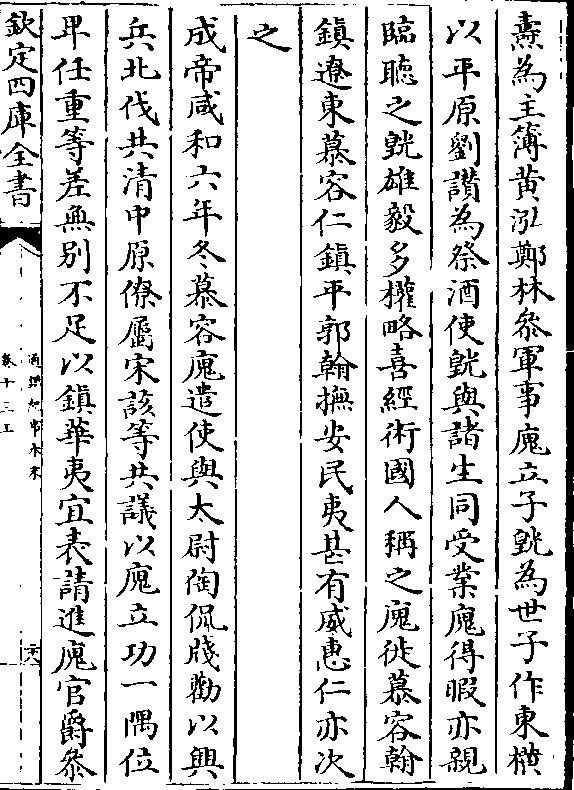 燾為主簿黄泓鄭林叅軍事廆立子皝為世子作東橫
以平原劉讃為祭酒使皝與諸生同受業廆得暇亦親
臨聽之皝雄毅多權略喜經術國人稱之廆徙慕容翰
鎮遼東慕容仁鎮平郭翰撫安民夷甚有威惠仁亦次
之
成帝咸和六年冬慕容廆遣使與太尉陶侃牋勸以興
兵北伐共清中原僚屬宋該等共議以廆立功一隅位
卑任重等差無别不足以鎮華夷宜表請進廆官爵叅
欽定四庫全書
通鑑紀事本末
卷十三上